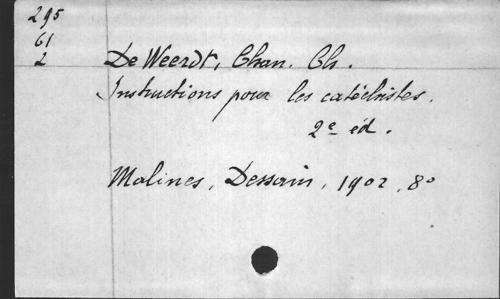 295
61
2
De Weerdt, Chan. Ch.
Instructions pour les catéchistes.
2e éd.
Malines, Dessain, 1902, 8o